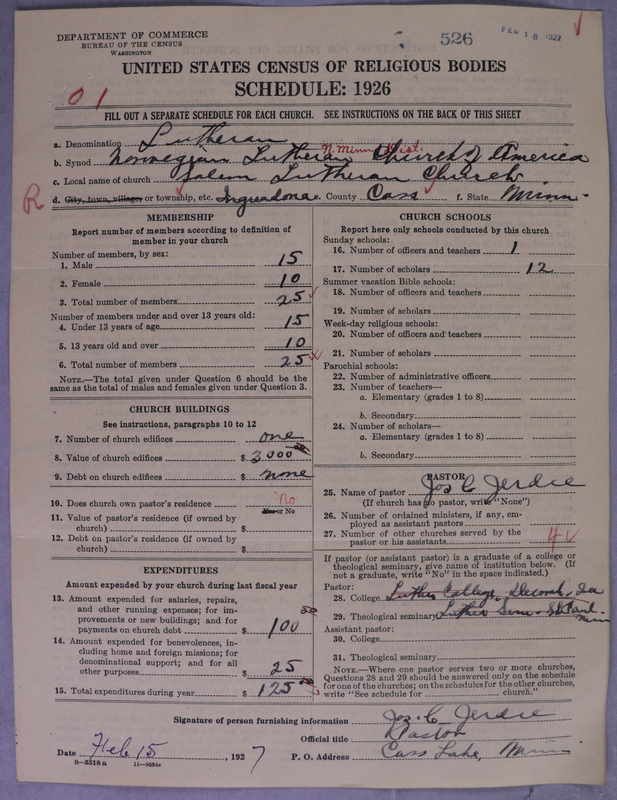 DEPARTMENT OF COMMERCE
BUREAU OF THE CENSUS
WASHINGTON
526
FEB 18 1927
UNITED STATES CENSUS OF RELIGIOUS BODIES
SCHEDULE: 1926
01
FILL OUT A SEPARATE SCHEDULE FOR EACH CHURCH. SEE INSTRUCTIONS ON THE BACK OF THIS SHEET
a. Denomination Lutheran
N. Minn. Dist.
b. Synod Norwegian Lutheran Church of America
c. Local name of church Salem Lutheran Church
R
d. City, town, village, or township, etc. Inguadona e. County Cass f. State Minn.
MEMBERSHIP
Report number of members according to definition of member in your church
Number of members, by sex:
1. Male 15
2. Female 10
3. Total number of members 25
Number of members under and over 13 years old:
4. Under 13 years of age 15
5. 13 years old and over 10
6. Total number of members 25
NOTE.—The total given under Question 6 should be the same as the total of males and females given under Question 3.
CHURCH BUILDINGS
See instructions, paragraphs 10 to 12
7. Number of church edifices one
8. Value of church edifices $ 3000 00
9. Debt on church edifices $ none
10. Does church own pastor's residence No
Yes or No
11. Value of pastor's residence (if owned by church) $
12. Debt on pastor's residence (if owned by church) $
EXPENDITURES
Amount expended by your church during last fiscal year
13. Amount expended for salaries, repairs, and other running expenses; for improvements or new buildings; and for payments on church debt $ 100 00
14. Amount expended for benevolences, including home and foreign missions; for denominational support; and for all other purposes $ 25
15. Total expenditures during year $ 125 00
CHURCH SCHOOLS
Report here only schools conducted by this church
Sunday schools:
16. Number of officers and teachers 1
17. Number of scholars 12
Summer vacation Bible schools:
18. Number of officers and teachers
19. Number of scholars
Week-day religious schools:
20. Number of officers and teachers
21. Number of scholars
Parochial schools:
22. Number of administrative officers
23. Number of teachers—
a. Elementary (grades 1 to 8)
b. Secondary
24. Number of scholars—
a. Elementary (grades 1 to 8)
b. Secondary
PASTOR
25. Name of pastor Jos C Jerdee
(If church has no pastor, write "None")
26. Number of ordained ministers, if any, employed as assistant pastors
27. Number of other churches served by the pastor or his assistants 4
If pastor (or assistant pastor) is a graduate of a college or theological seminary, give name of institution below. (If not a graduate, write "No" in the space indicated.)
Pastor:
28. College Luther College, Decorah, Ia
29. Theological seminary Luther Sem - St Paul Minn
Assistant pastor:
30. College
31. Theological seminary
NOTE.—Where one pastor serves two or more churches, Questions 28 and 29 should be answered only on the schedule for one of the churches; on the schedules for the other churches, write "See schedule for church."
Signature of person furnishing information Jos. C. Jerdee
Official title Pastor
Date Feb 15, 1927 P. O. Address Cass Lake, Minn
8—5518a 11—9084a